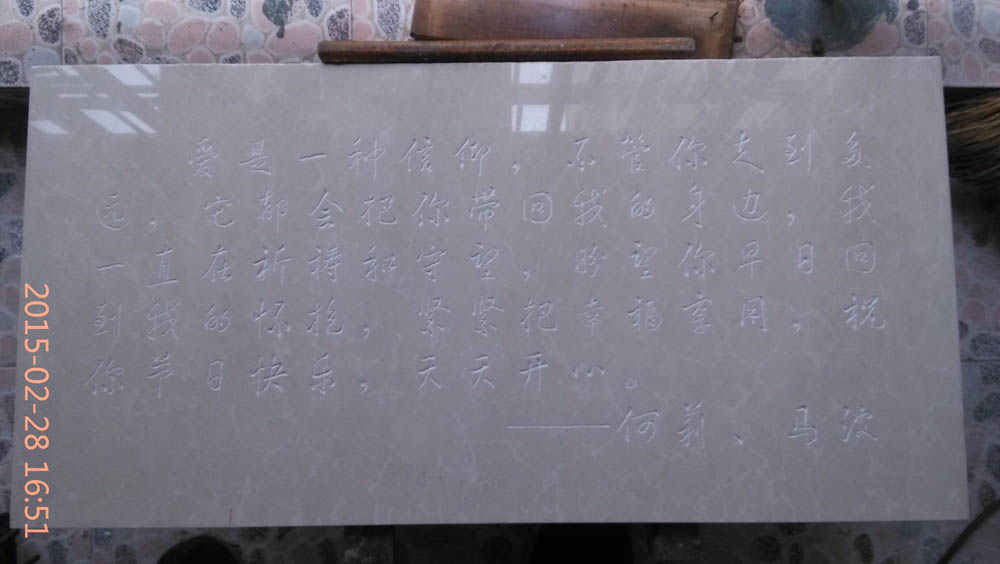 爱是一种信仰，不管你走到多
远，它都会把你带回我的身边，我
一直在祈祷和守望，盼望你早日回
到我的怀抱，紧紧把幸福享用，祝
你节日快乐，天天开心。
———何莉、马波
2015-02-28 16:51